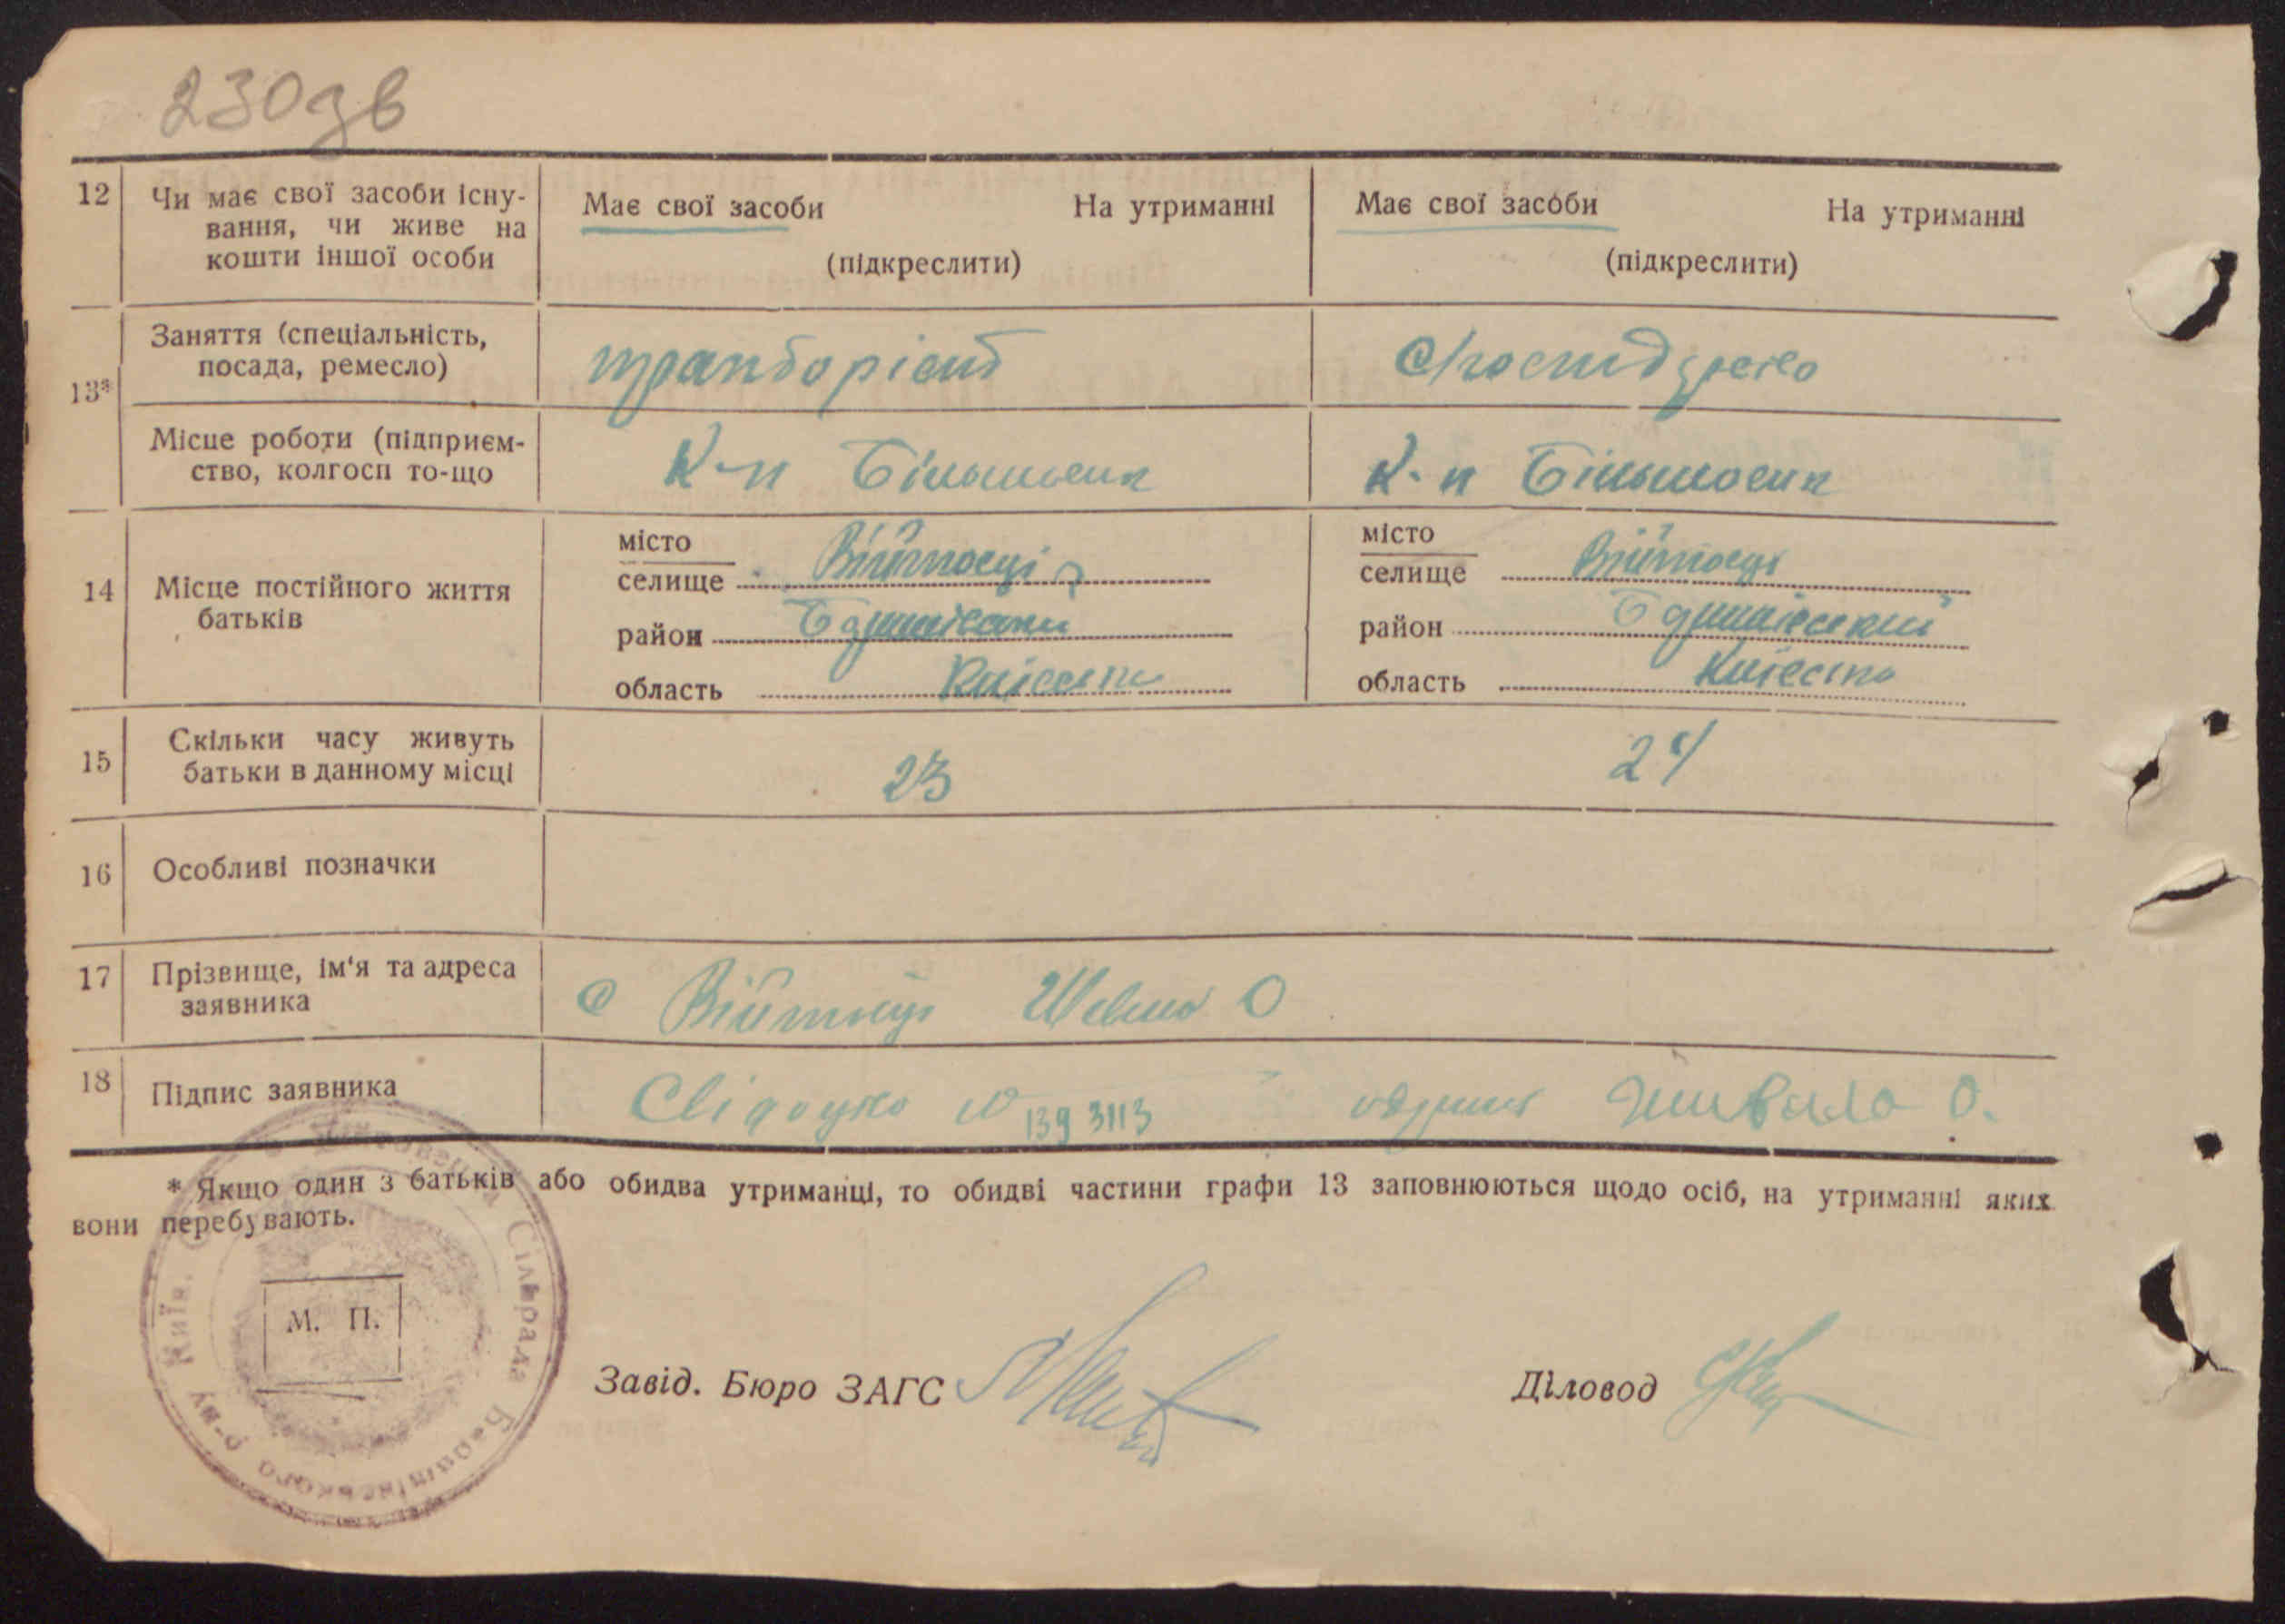 230 зв
12 Чи має свої засоби існу- Має свої засоби На утриманні Має свої засоби На утриманні
вання, чи живе на
кошти іншої особи (підкреслити) (підкреслити)
Заняття (спеціальність,
посада, ремесло)
13*
Місце роботи (підприєм- К-п Більшовик К-п Більшовик
ство, колгосп то-що
місто місто
селище Війтовці селище Війтовці
14 Місце постійного життя
батьків
район район
область Київська область Київська
15 Скільки часу живуть
батьки в данному місці 23 24
16 Особливі позначки
17 Прізвище, ім'я та адреса
заявника с Війтовці О
18 Підпис заявника № 139 3113 О.
* Якщо один з батьків або обидва утриманці, то обидві частини графи 13 заповнюються щодо осіб, на утриманні яких
вони перебувають.
М. П.
Завід. Бюро ЗАГС Діловод
Сільрада Баришівського р-ну Київ.